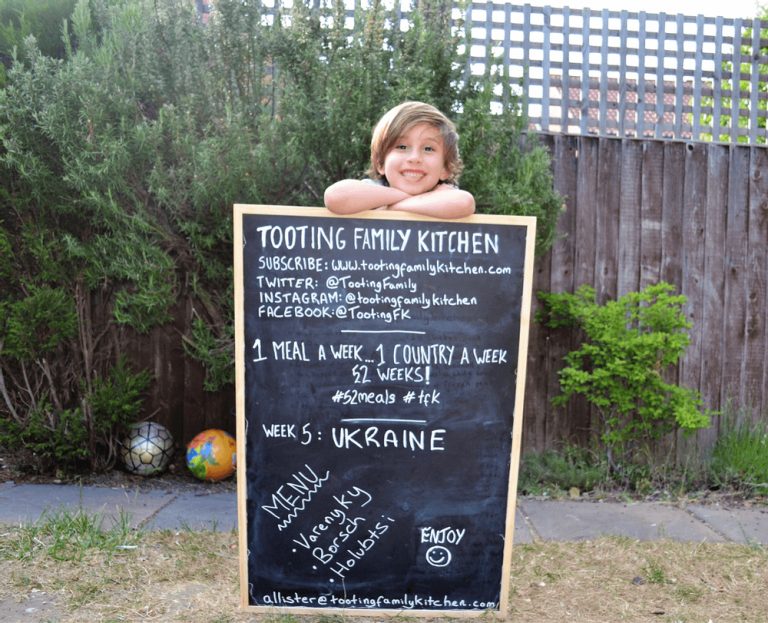 TOOTING FAMILY KITCHEN
SUBSCRIBE: www.tootingfamilykitchen.com
TWITTER: @TootingFamily
INSTAGRAM: @tootingfamilykitchen
FACEBOOK: @TootingFK
1 MEAL A WEEK... 1 COUNTRY A WEEK
52 WEEKS!
#52meals #tfk
WEEK 5: UKRAINE
MENU
• Varenyky
• Borsch
• Holubtsi
ENJOY
allister@tootingfamilykitchen.com